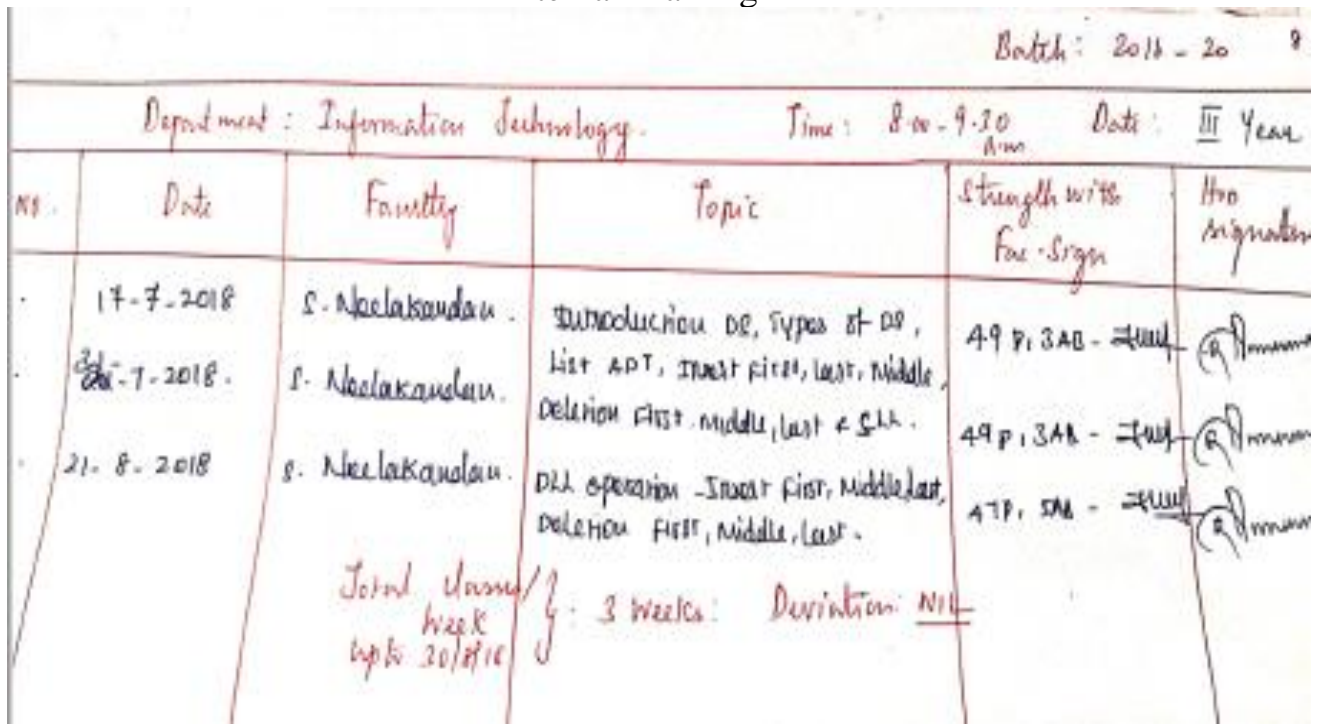 Batch: 2016 - 20
Department: Information Technology. Time: 8.00 - 9.30 A.m Date: III Year
No. Date Faculty Topic Strength with Fac-Sign HOD signature
17-7-2018 S. Neelakandan. Introduction DS, Types of DS,
List ADT, Insert First, Last, Middle,
-7-2018. S. Neelakandan. Deletion First, Middle, last & SLL.
49 P, 3AB -
49 P, 3AB -
21-8-2018 S. Neelakandan. DLL operation - Insert First, Middle, Last,
Deletion First, Middle, Last.
47P, 5AB -
Total classes/
week : 3 weeks: Deviation: NIL
upto